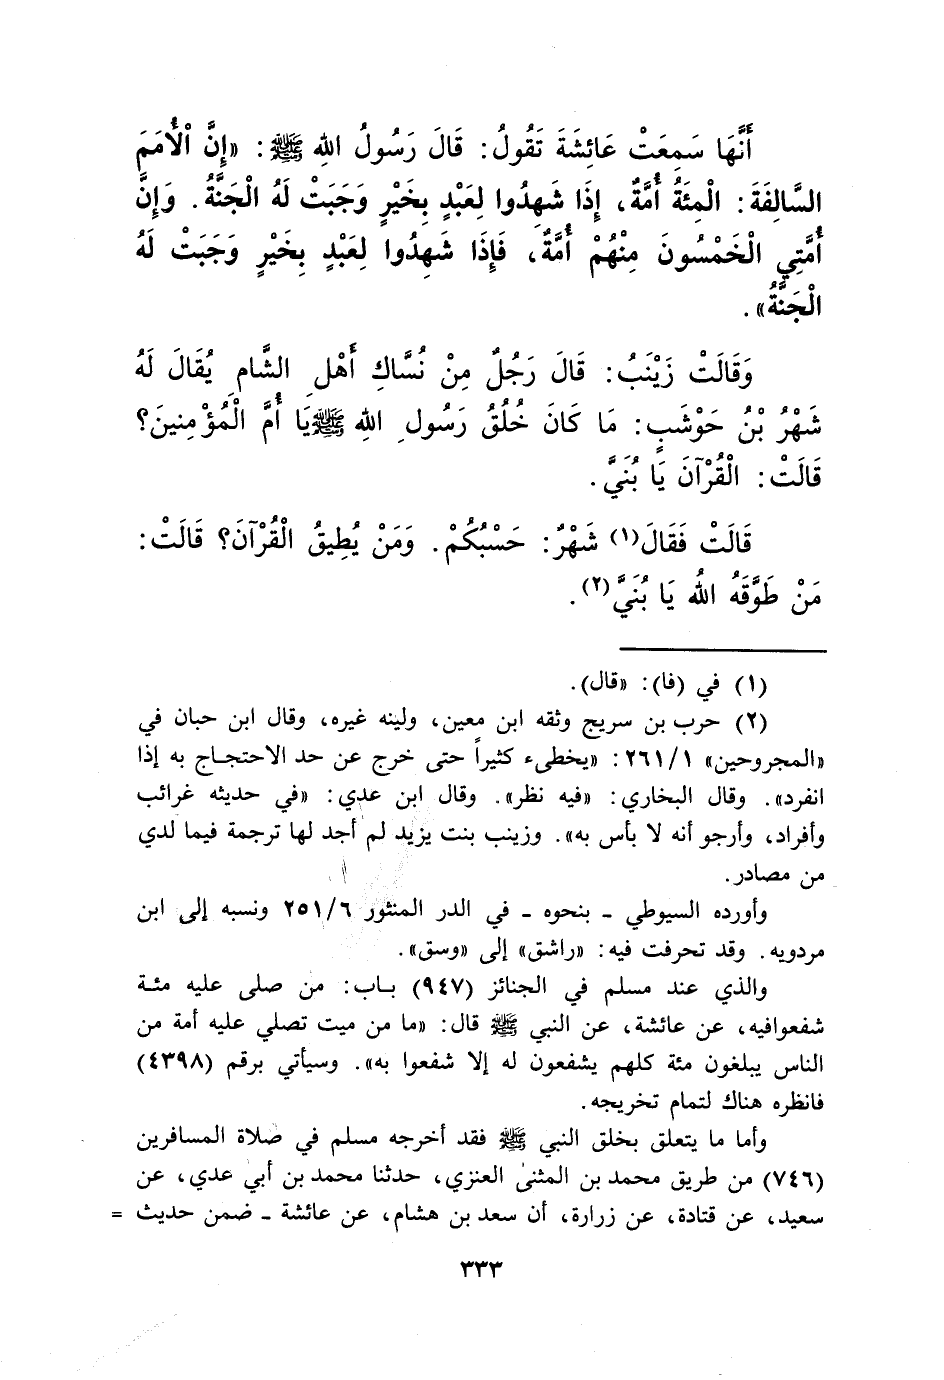 أَنَّهَا سَمِعَتْ عَائِشَةَ تَقُولُ: قَالَ رَسُولُ اللهِ ﷺ: «إِنَّ الْأُمَمَ
السَّالِفَةَ: الْمِئَةُ أُمَّةٌ، إِذَا شَهِدُوا لِعَبْدٍ بِخَيْرٍ وَجَبَتْ لَهُ الْجَنَّةُ. وَإِنَّ
أُمَّتِي الْخَمْسُونَ مِنْهُمْ أُمَّةٌ، فَإِذَا شَهِدُوا لِعَبْدٍ بِخَيْرٍ وَجَبَتْ لَهُ
الْجَنَّةُ».
وَقَالَتْ زَيْنَبُ: قَالَ رَجُلٌ مِنْ نُسَّاكِ أَهْلِ الشَّامِ يُقَالَ لَهُ
شَهْرُ بْنُ حَوْشَبٍ: مَا كَانَ خُلُقُ رَسُولِ اللهِ ﷺ يَا أُمَّ الْمُؤْمِنِينَ؟
قَالَتْ: الْقُرْآنَ يَا بُنَيَّ.
قَالَتْ فَقَالَ(١) شَهْرٌ: حَسْبُكُمْ. وَمَنْ يُطِيقُ الْقُرْآنَ؟ قَالَتْ:
مَنْ طَوَّقَهُ اللهُ يَا بُنَيَّ(٢).
(١) في (فا): «قال).
(٢) حرب بن سريج وثقه ابن معين، ولينه غيره، وقال ابن حبان في
«المجروحين» ٢٦١/١: «يخطىء كثيراً حتى خرج عن حد الاحتجاج به إذا
انفرد». وقال البخاري: «فيه نظر». وقال ابن عدي: «في حديثه غرائب
وأفراد، وأرجو أنه لا بأس به». وزينب بنت يزيد لم أجد لها ترجمة فيما لدي
من مصادر.
وأورده السيوطي - بنحوه - في الدر المنثور ٢٥١/٦ ونسبه إلى ابن
مردويه. وقد تحرفت فيه: «راشق» إلى «وسق».
والذي عند مسلم في الجنائز (٩٤٧) باب: من صلى عليه مئة
شفعوافيه، عن عائشة، عن النبي ﷺ قال: «ما من ميت تصلي عليه أمة من
الناس يبلغون مئة كلهم يشفعون له إلا شفعوا به». وسيأتي برقم (٤٣٩٨)
فانظره هناك لتمام تخريجه.
وأما ما يتعلق بخلق النبي ﷺ فقد أخرجه مسلم في صلاة المسافرين
(٧٤٦) من طريق محمد بن المثنى العنزي، حدثنا محمد بن أبي عدي، عن
سعيد، عن قتادة، عن زرارة، أن سعد بن هشام، عن عائشة - ضمن حديث =
٣٣٣